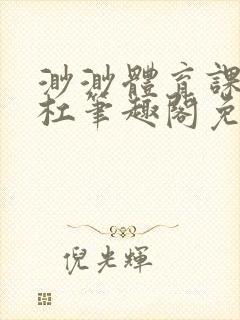 渺渺體育課
杜筆趣閣免
倪光輝